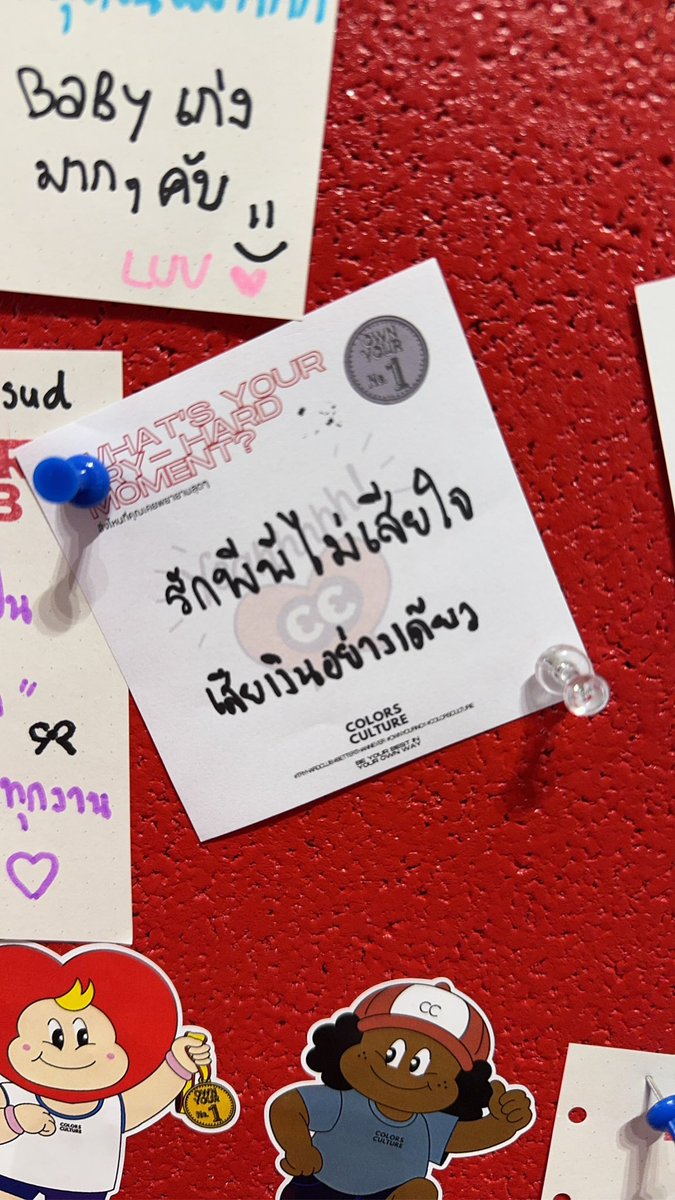 BaBy เก่ง
มากๆ คับ
LUV
sud
OWN
YOUR
No. 1
WHAT'S YOUR
TRY-HARD
MOMENT?
สิ่งไหนที่คุณเคยพยายามสุดๆ
รักพีพีไม่เสียใจ
เสียเงินอย่างเดียว
CC
COLORS
CULTURE
BE YOUR BEST IN
YOUR OWN WAY
ทุกงาน
CC
OWN
YOUR
No. 1
COLORS
CULTURE
COLORS
CULTURE